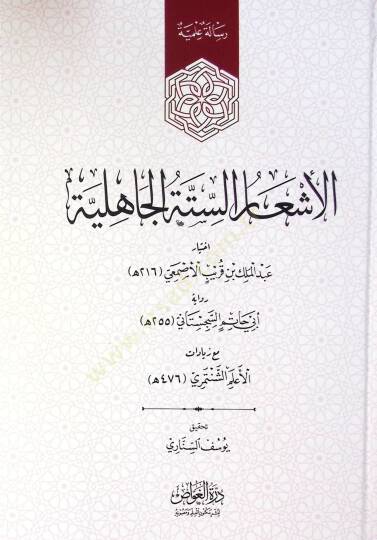 رسالة علمية
الأشعار الستة الجاهلية
اختيار
عبد الملك بن قريب الأصمعي (٢١٦هـ)
رواية
أبي حاتم السجستاني (٢٥٥هـ)
مع زيادات
الأعلم الشنتمري (٤٧٦هـ)
تحقيق
يوسف السناري
درة الغواص